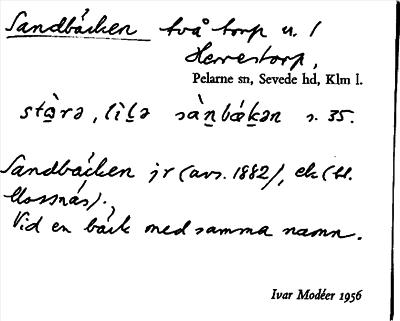 Sandbäcken två torp u. /
Herrestorp,
Pelarne sn, Sevede hd, Klm l.
stɑ̀rə, lìlə sànbǽkən s. 35.
Sandbäcken jr (avs. 1882), ek (bl.
Mossnäs).
Vid en bäck med samma namn.
Ivar Modéer 1956